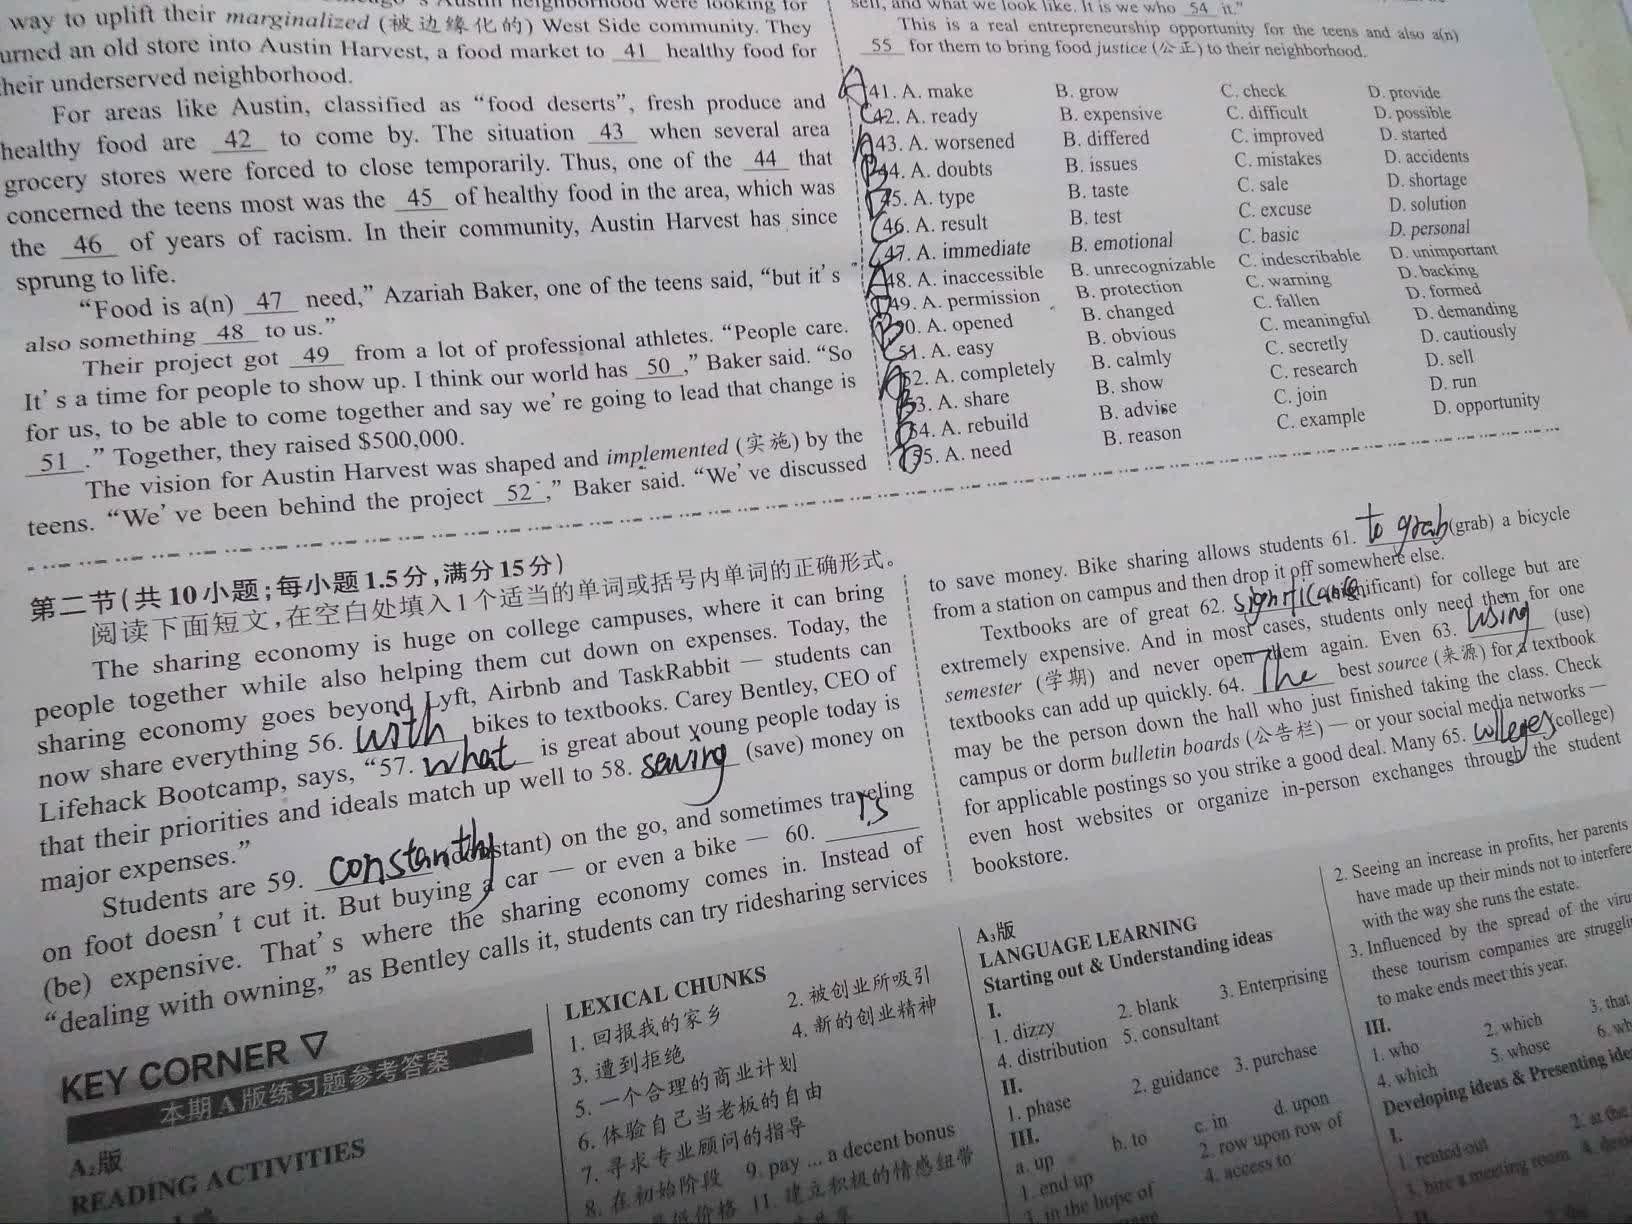 's Austin neighborhood were looking for
way to uplift their marginalized (被边缘化的) West Side community. They
urned an old store into Austin Harvest, a food market to 41 healthy food for
their underserved neighborhood.
For areas like Austin, classified as “food deserts”, fresh produce and
healthy food are 42 to come by. The situation 43 when several area
grocery stores were forced to close temporarily. Thus, one of the 44 that
concerned the teens most was the 45 of healthy food in the area, which was
the 46 of years of racism. In their community, Austin Harvest has since
sprung to life.
“Food is a(n) 47 need,” Azariah Baker, one of the teens said, “but it's
also something 48 to us.”
Their project got 49 from a lot of professional athletes. “People care.
It's a time for people to show up. I think our world has 50 ,” Baker said. “So
for us, to be able to come together and say we're going to lead that change is
51 .” Together, they raised $500,000.
The vision for Austin Harvest was shaped and implemented (实施) by the
teens. “We've been behind the project 52 ,” Baker said. “We've discussed
self, and what we look like. It is we who 54 it.”
This is a real entrepreneurship opportunity for the teens and also a(n)
55 for them to bring food justice (公正) to their neighborhood.
A 41. A. make B. grow C. check D. provide
C 42. A. ready B. expensive C. difficult D. possible
A 43. A. worsened B. differed C. improved D. started
B 44. A. doubts B. issues C. mistakes D. accidents
D 45. A. type B. taste C. sale D. shortage
C 46. A. result B. test C. excuse D. solution
C 47. A. immediate B. emotional C. basic D. personal
A 48. A. inaccessible B. unrecognizable C. indescribable D. unimportant
D 49. A. permission B. protection C. warning D. backing
B 50. A. opened B. changed C. fallen D. formed
C 51. A. easy B. obvious C. meaningful D. demanding
A 52. A. completely B. calmly C. secretly D. cautiously
B 53. A. share B. show C. research D. sell
D 54. A. rebuild B. advise C. join D. run
D 55. A. need B. reason C. example D. opportunity
第二节(共10小题;每小题1.5分,满分15分)
阅读下面短文,在空白处填入1个适当的单词或括号内单词的正确形式。
The sharing economy is huge on college campuses, where it can bring
people together while also helping them cut down on expenses. Today, the
sharing economy goes beyond Lyft, Airbnb and TaskRabbit — students can
now share everything 56. with bikes to textbooks. Carey Bentley, CEO of
Lifehack Bootcamp, says, “57. what is great about young people today is
that their priorities and ideals match up well to 58. saving (save) money on
major expenses.”
Students are 59. constantly (constant) on the go, and sometimes traveling
on foot doesn't cut it. But buying a car — or even a bike — 60. is
(be) expensive. That's where the sharing economy comes in. Instead of
“dealing with owning,” as Bentley calls it, students can try ridesharing services
to save money. Bike sharing allows students 61. to grab (grab) a bicycle
from a station on campus and then drop it off somewhere else.
Textbooks are of great 62. significance (significant) for college but are
extremely expensive. And in most cases, students only need them for one
semester (学期) and never open them again. Even 63. using (use)
textbooks can add up quickly. 64. The best source (来源) for a textbook
may be the person down the hall who just finished taking the class. Check
campus or dorm bulletin boards (公告栏) — or your social media networks —
for applicable postings so you strike a good deal. Many 65. colleges (college)
even host websites or organize in-person exchanges through the student
bookstore.
KEY CORNER
本期A版练习题参考答案
A₂版
READING ACTIVITIES
LEXICAL CHUNKS
1. 回报我的家乡 2. 被创业所吸引
3. 遭到拒绝 4. 新的创业精神
5. 一个合理的商业计划
6. 体验自己当老板的自由
7. 寻求专业顾问的指导
8. 在初始阶段 9. pay ... a decent bonus
11. 建立积极的情感纽带
A₃版
LANGUAGE LEARNING
Starting out & Understanding ideas
I.
1. dizzy 2. blank 3. Enterprising
4. distribution 5. consultant
II.
1. phase 2. guidance 3. purchase
III.
a. up b. to c. in d. upon
1. end up 2. row upon row of
3. in the hope of 4. access to
2. Seeing an increase in profits, her parents
have made up their minds not to interfere
with the way she runs the estate.
3. Influenced by the spread of the
these tourism companies are
to make ends meet this year.
III.
1. who 2. which 3. that
4. which 5. whose
Developing ideas & Presenting
I.
1. rented out